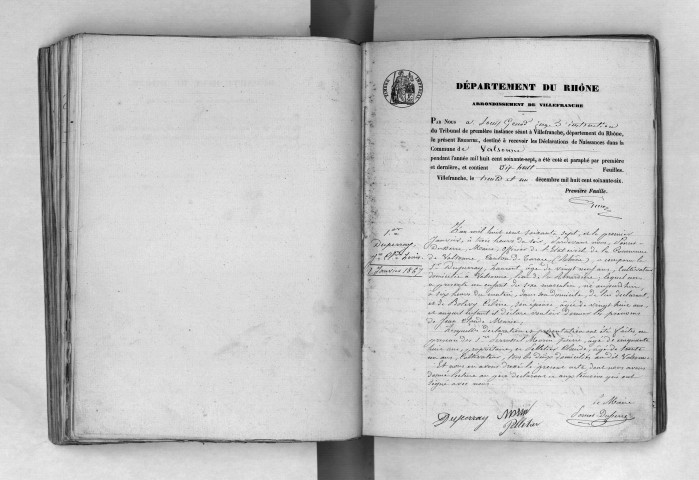 DÉPARTEMENT DU RHÔNE
ARRONDISSEMENT DE VILLEFRANCHE
PAR NOUS Louis Genod juge d'instruction
du Tribunal de première instance séant à Villefranche, département du Rhône,
le présent REGISTRE, destiné à recevoir les Déclarations de Naissances dans la
Commune de Valsonne
pendant l'année mil huit cent soixante-sept, a été coté et paraphé par première
et dernière, et contient dix huit Feuilles.
Villefranche, le trente et un décembre mil huit cent soixante-six.
Première Feuille.
1er
Duperray
1 Janvier 1867
L'an mil huit cent soixante sept, et le premier
Janvier, à trois heures du soir, Pardevant nous,
Maire, officier de l'état civil de la Commune
de Valsonne, Canton de Tarare (Rhône), a comparu le
Sr Duperray, âgé de vingt neuf ans, Cultivateur
domicilié à Valsonne, lequel nous
a présenté un enfant du sexe masculin, né aujourd'hui
à six heures du matin, dans son domicile, de lui déclarant
et de son épouse, âgée de vingt huit ans,
et auquel enfant il déclare vouloir donner les prénoms
de Jean Claude Marie.
Lesquelles déclaration et présentation ont été faites en
présence des Srs Marin, âgé de cinquante
huit ans, propriétaire, et Pelletier Claude, âgé de trente
un ans, Cultivateur, tous les deux domiciliés audit Valsonne
Et nous en avons dressé le présent acte dont nous avons
donné lecture au père déclarant et aux témoins qui ont
signé avec nous.
Le Maire
Duperray
Pelletier